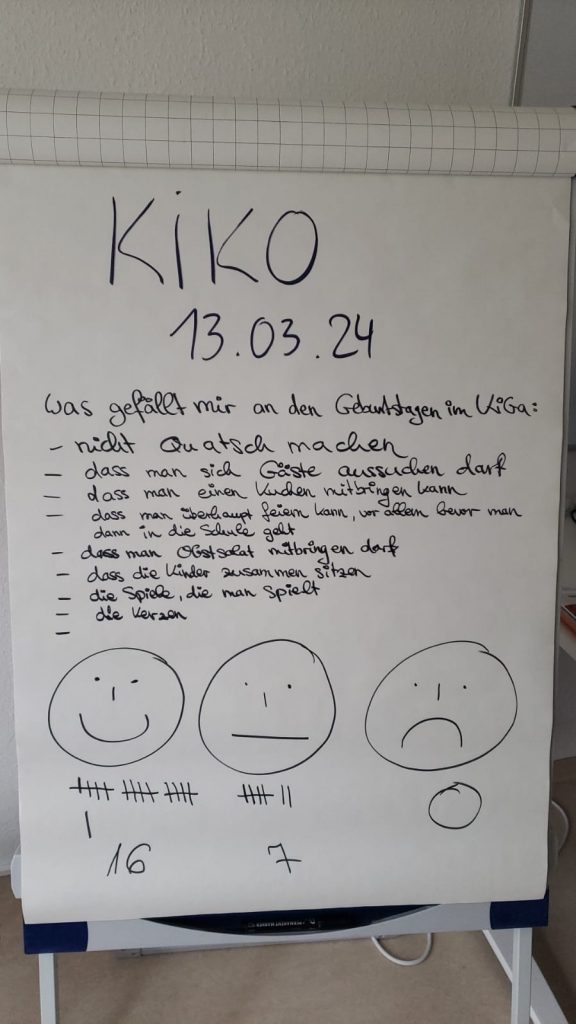 KiKO
13.03.24
Was gefällt mir an den Geburtstagen im KiGa:
- nicht Quatsch machen
- dass man sich Gäste aussuchen darf
- dass man einen Kuchen mitbringen kann
- dass man überhaupt feiern kann, vor allem bevor man
dann in die Schule geht
- dass man Obstsalat mitbringen darf
- dass die Kinder zusammen sitzen
- die Spiele, die man spielt
- die Kerzen
-
16 7